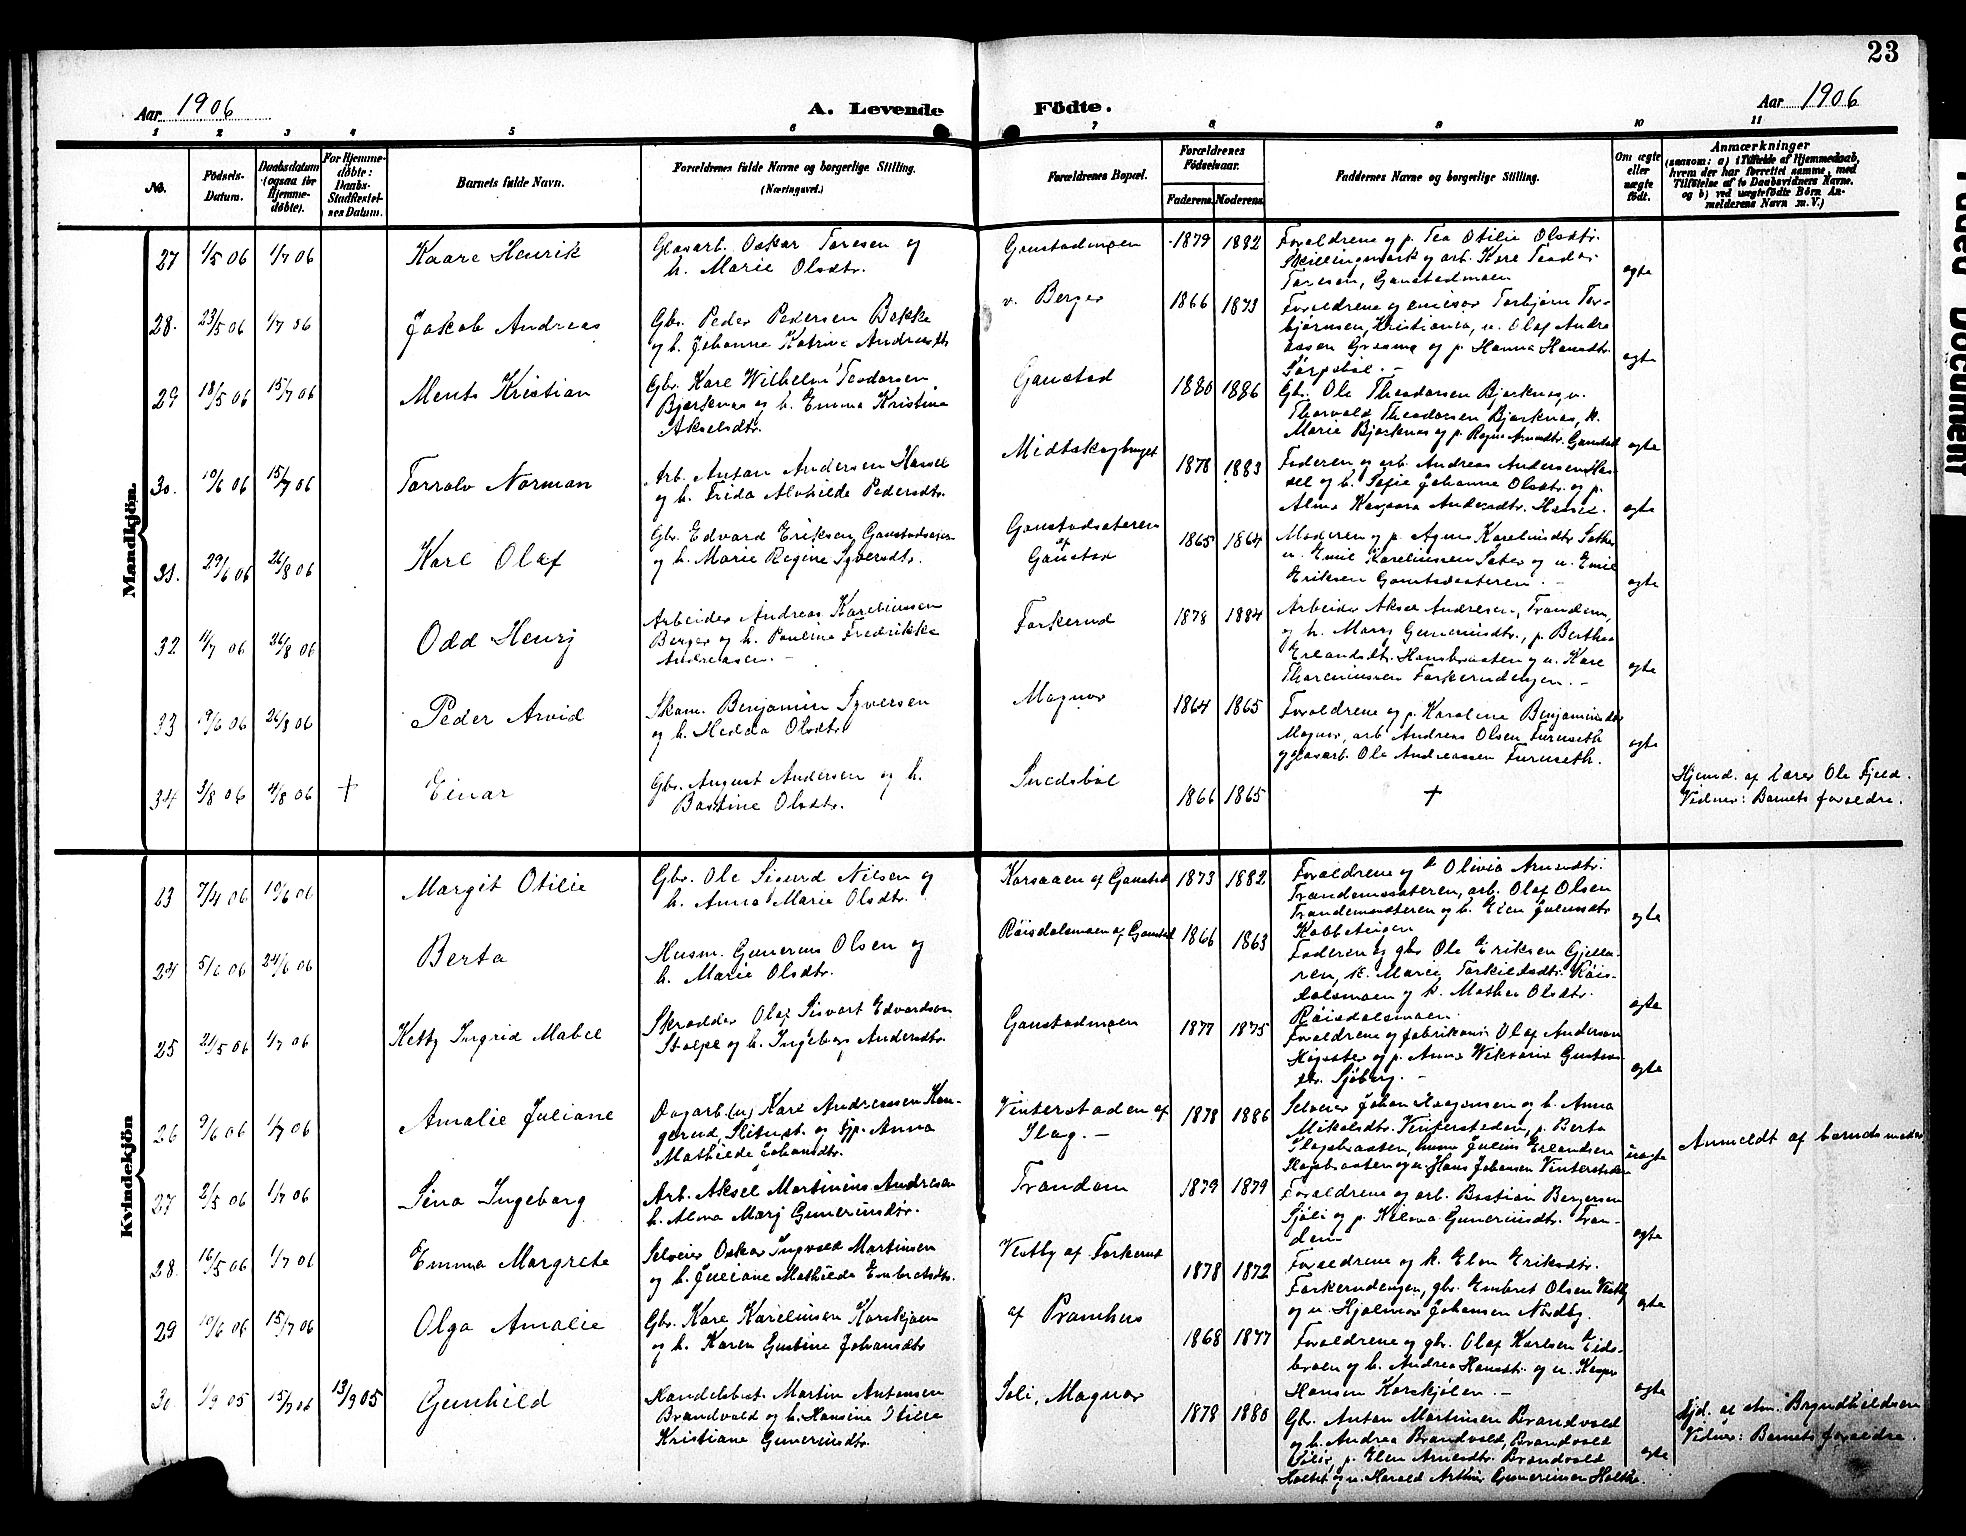 23
Aar 1906
A. Levende
Födte.
Aar 1906
1 2 3 4 5 6 7 8 9 10 11
No.
Födsels-
Datum.
Daabsdatum
(ogsaa for
Hjemme-
døbte).
For Hjemme-
döbte:
Daabs-
Stadfæstel-
ses Datum.
Barnets fulde Navn.
Forældrenes fulde Navne og borgerlige Stilling.
(Næringsvei.)
Forældrenes Bopæl.
Forældrenes
Födselsaar.
Faderens. Moderens.
Faddernes Navne og borgerlige Stilling.
Om ægte
eller
uægte
födt.
Anmærkninger
(saasom: a) i Tilfælde af Hjemmedaab,
hvem der har forrettet samme, med
Tilföielse af to Daabsvidners Navne.
og b) ved uægtefödte Börn An-
melderens Navn m. V.)
Mandkjön.
27 1/5 06 1/7 06 Kaare Henrik
Glasarb. Oskar Toresen og
h. Marie Olsdtr.
Gaustadmoen 1879 1882
Forældrene og p. Tea Otilie Olsdtr.
Skillingmark og arb. Kare Teodor
Toresen, Gaustadmoen
ægte
28. 23/5 06 1/7 06 Jakob Andreas
Gbr. Peder Pedersen Bakke
og h. Johanne Katrine Andreasdtr.
v. Berger 1866 1873
Forældrene og emisær Torbjørn Tor-
bjørnsen, Kristiania, u. Olaf Andre
assen Grasmo og p. Hanna Hansdtr.
Sørpebøl. -
ægte
29 18/5 06 15/7 06 Ments Kristian
Gbr. Kare Wilhelm Teodorsen
Bjørknæs og h. Emma Kristine
Akselsdtr.
Gaustad 1880 1886
Gbr. Ole Theodorsen Bjørknæs, u.
Thorvald Theodorsen Bjørknæs, k.
Marie Bjørknæs og p. Ragna Arnesdtr. Gaustad
ægte
30. 10/6 06 15/7 06 Torrolv Norman
Arb. Anton Andersen Hassel
og h. Frida Alvhilde Pedersdtr.
Midtskogbruget 1878 1883
Faderen og arb. Andreas Andersen Has-
sel og h. Sofie Johanne Olsdtr. og p.
Alma Kaspara Andersdtr. Hassel.
ægte
31. 29/6 06 26/8 06 Kare Olaf
Gbr. Edvard Eriksen Gaustadsæter
og h. Marie Regine Syversdtr.
Gaustadsæteren
af
Gaustad
1865 1864
Moderen og p. Agnes Karelinsdtr. Sæther
u. Emil Kareliussen Sæter og u. Emil
Eriksen Gaustadsæteren. -
ægte
32 11/7 06 26/8 06 Odd Henry
Arbeider Andreas Kareliussen
Berger og h. Pauline Fredrikke
Andreasen. -
Forkerud 1878 1884
Arbeider Aksel Andresen, Trandem,
og h. Mary Gunerinsdtr., p. Bertha
Erlandsdtr. Hansbraaten og u. Kare
Thorsteinsen Forkerudengen. -
ægte
33 19/6 06 26/8 06 Peder Arvid
Skom. Benjamin Syversen
og h. Hedda Olsdtr.
Magnor 1864 1865
Forældrene og p. Karoline Benjaminsdtr
Magnor, arb Andreas Olsen Furuseth
og glasarb. Ole Andreassen Furuseth.
ægte
34 3/8 06 4/8 06 + Einar
Gbr. August Andersen og h.
Bastine Olsdtr.
Snedsbøl 1866 1865
+
Hjemd. af lærer Ole Fjeld.
Vidner: Barnets forældre.
Kvindekjön
23 7/4 06 10/6 06 Margit Otilie
Gbr. Ole Sigurd Nilsen og
h. Anna Marie Olsdtr.
Korsaaen af Gaustad 1873 1882
Forældrene og k Olivia Arnesdtr.
Trandemsæteren, arb. Olaf Olsen
Trandemsæteren og h. Elen Julinsdtr
Kobbeteigen
ægte
24 5/6 06 24/6 06 Berta
Husm. Gunerius Olsen og
h. Marie Olsdtr.
Røisdalsmoen af Gaustad 1866 1863
Faderen og gbr Ole Eriksen Gjelle-
ren, k. Marie Torkildsdtr. Røis-
dalsmoen og k. Mathea Olsdtr.
Røisdalsmoen.
ægte
25 21/5 06 1/7 06 Ketty Ingrid Mabel
Skrædder Olaf Sivart Edvardsen
Stolpe og h. Ingeborg Andersdtr.
Gaustadmoen 1877 1875
Forældrene og fabrikeier Olaf Anderson
Høgsæter og p. Anna Wiktoria Gustavs-
dtr. Sjøberg. -
ægte
26 9/6 06 1/7 06 Amalie Juliane
Dagarb (u) Kare Andreassen Kon-
gerud, og pp. Anna
Mathilde Johansdtr.
Vinterstaden af
Slag. -
1878 1886
Selveier Johan Haagensen og h. Anna
Mikalsdtr. Vinterstaden, p. Berta
Slagsbraaten, husm Julius Erlandsen
Slagsbraaten og u. Hans Johansen Vinterstaden
uægte
Anmeldt af barnets moder
27 2/5 06 1/7 06 Sina Ingeborg
Arb. Aksel Martinius Andresen
h. Alma Mary Gunerinsdtr.
Trandem 1879 1879
Forældrene og arb. Bastian Bergersen
Sjøli og p. Hilma Gunerinsdtr. Tran-
dem
ægte
28. 16/5 06 1/7 06 Emma Margrete
Selveier Oskar Ingvald Martinsen
og h. Juliane Mathilde Embretsdtr.
Vestby af Forkerud 1878 1872
Forældrene og k. Elen Eriksdtr.
Forkerudengen, gbr. Embret Olsen Vestby
og u. Hjalmar Johansen Nordby.
ægte
29 10/6 06 15/7 06 Olga Amalie
Gbr. Kare Karelinsen Korskjøen
og h. Karen Gustine Johansdtr
af Pramhus 1868 1877
Forældrene og gbr. Olaf Karlsen Eids-
braaen og h. Andrea Hansdtr. og u. Kasper
Hansen Korskjølen. -
ægte
30 1/9 05 15/7 06 13/9 05 Gunhild
Handelsbest. Martin Antonsen
Brandvold og h. Hansine Otilie
Kristiane Gunerinsdtr.
Soli, Magnor 1878 1880
Gbr. Anton Martinsen Brandvold
og h. Andrea Brandvold, Brandvold
p. Elen Arnesdtr. Brandvold
Holtet og u. Harald Arthur Gunerinsen Holthe.
ægte
Hjd. af Bryndhildsen
Vidner: Barnets forældre.